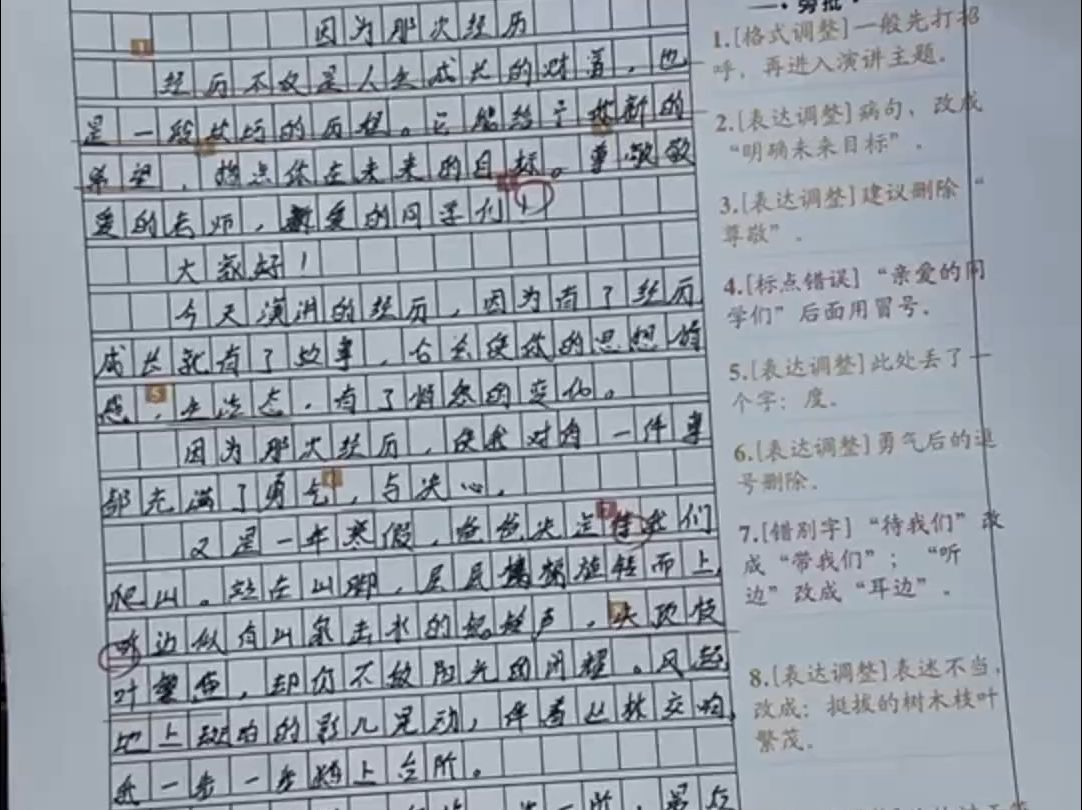 因为那次经历
经历不仅是人生成长的财富，也
是一段技巧的历程。它能给予崭新的
希望，指点你在未来的目标。尊敬敬
爱的老师，亲爱的同学们！
大家好！
今天演讲的经历，因为有了经历
成长就有了故事，它会使我的思想情
感，生活态，有了悄然的变化。
因为那次经历，使我对每一件事
都充满了勇气，与决心。
又是一年寒假，爸爸决定待我们
爬山。站在山脚，层层旋转而上，
听边似有山泉击水的铃声，枝
叶繁，却仍不敌阳光的闪耀。风
地上斑白的影儿晃动，伴着丛林交响，
我一步一步踏上台阶。
旁批
1.[格式调整]一般先打招
呼，再进入演讲主题。
2.[表达调整]病句，改成
“明确未来目标”。
3.[表达调整]建议删除“
尊敬”。
4.[标点错误]“亲爱的同
学们”后面用冒号。
5.[表达调整]此处丢了一
个字：度。
6.[表达调整]勇气后的逗
号删除。
7.[错别字]“待我们”改
成“带我们”；“听
边”改成“耳边”。
8.[表达调整]表述不当，
改成：挺拔的树木枝叶
繁茂。